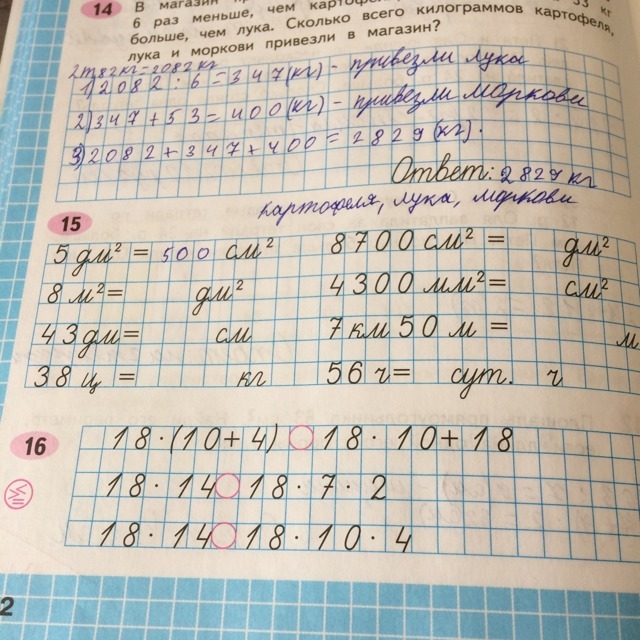 14 В магазин
6 раз меньше, чем картофеля, 53 кг
больше, чем лука. Сколько всего килограммов картофеля,
лука и моркови привезли в магазин?
2т82кг=2082кг
1)2082:6=347(кг)-привезли лука
2)347+53=400(кг)-привезли моркови
3)2082+347+400=2829(кг).
Ответ: 2829 кг
картофеля, лука, моркови
15
5 дм² = 500 см² 8700 см² = дм²
8 м²= дм² 4300 мм²= см²
43дм= см 7км 50 м = м
38 ц = кг 56 ч= сут. ч
16 18·(10+4) ○ 18·10+18
18·14 ○ 18·7·2
18·14 ○ 18·10·4
2